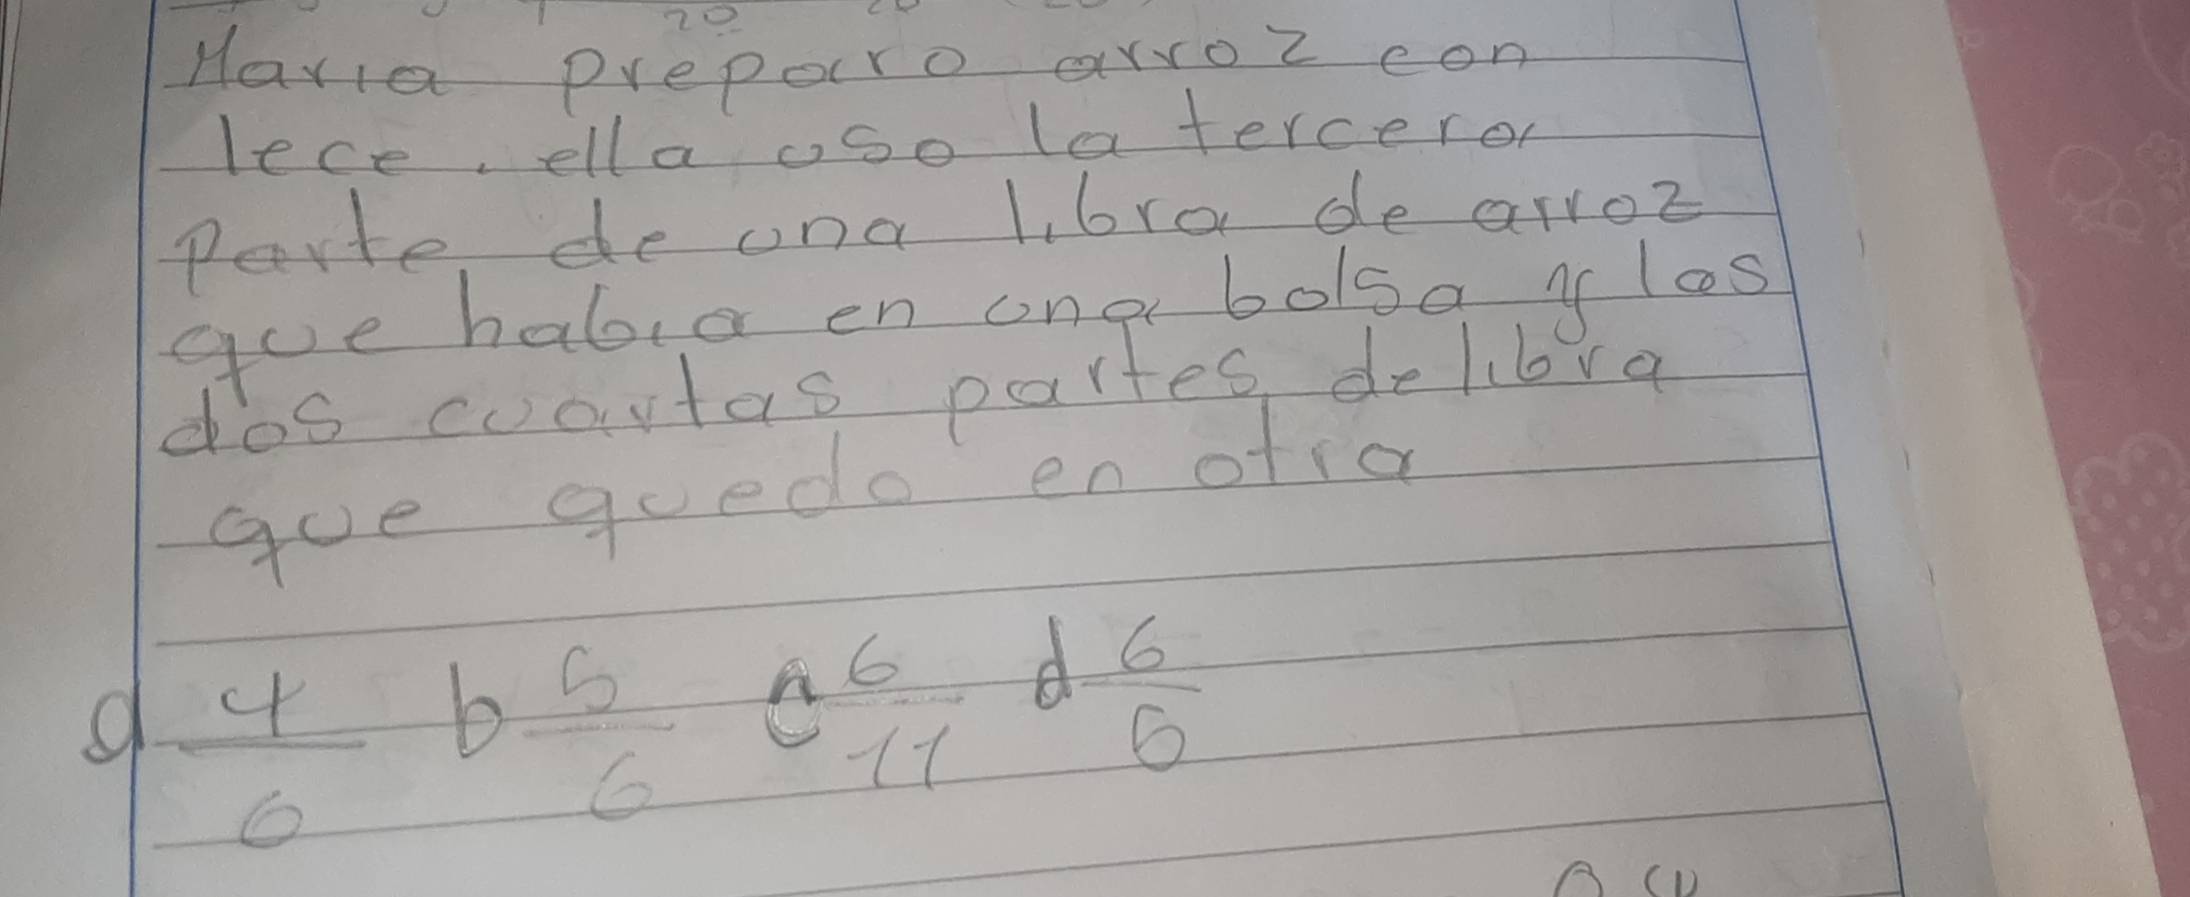 20
Maria preparo arroz con
lece. ella uso la tercera
parte de una libra de arroz
que habia en una bolsa y las
dos cuartas partes de libra
que quedo en otra
a 4/6 b 5/6 c 6/11 d 6/6